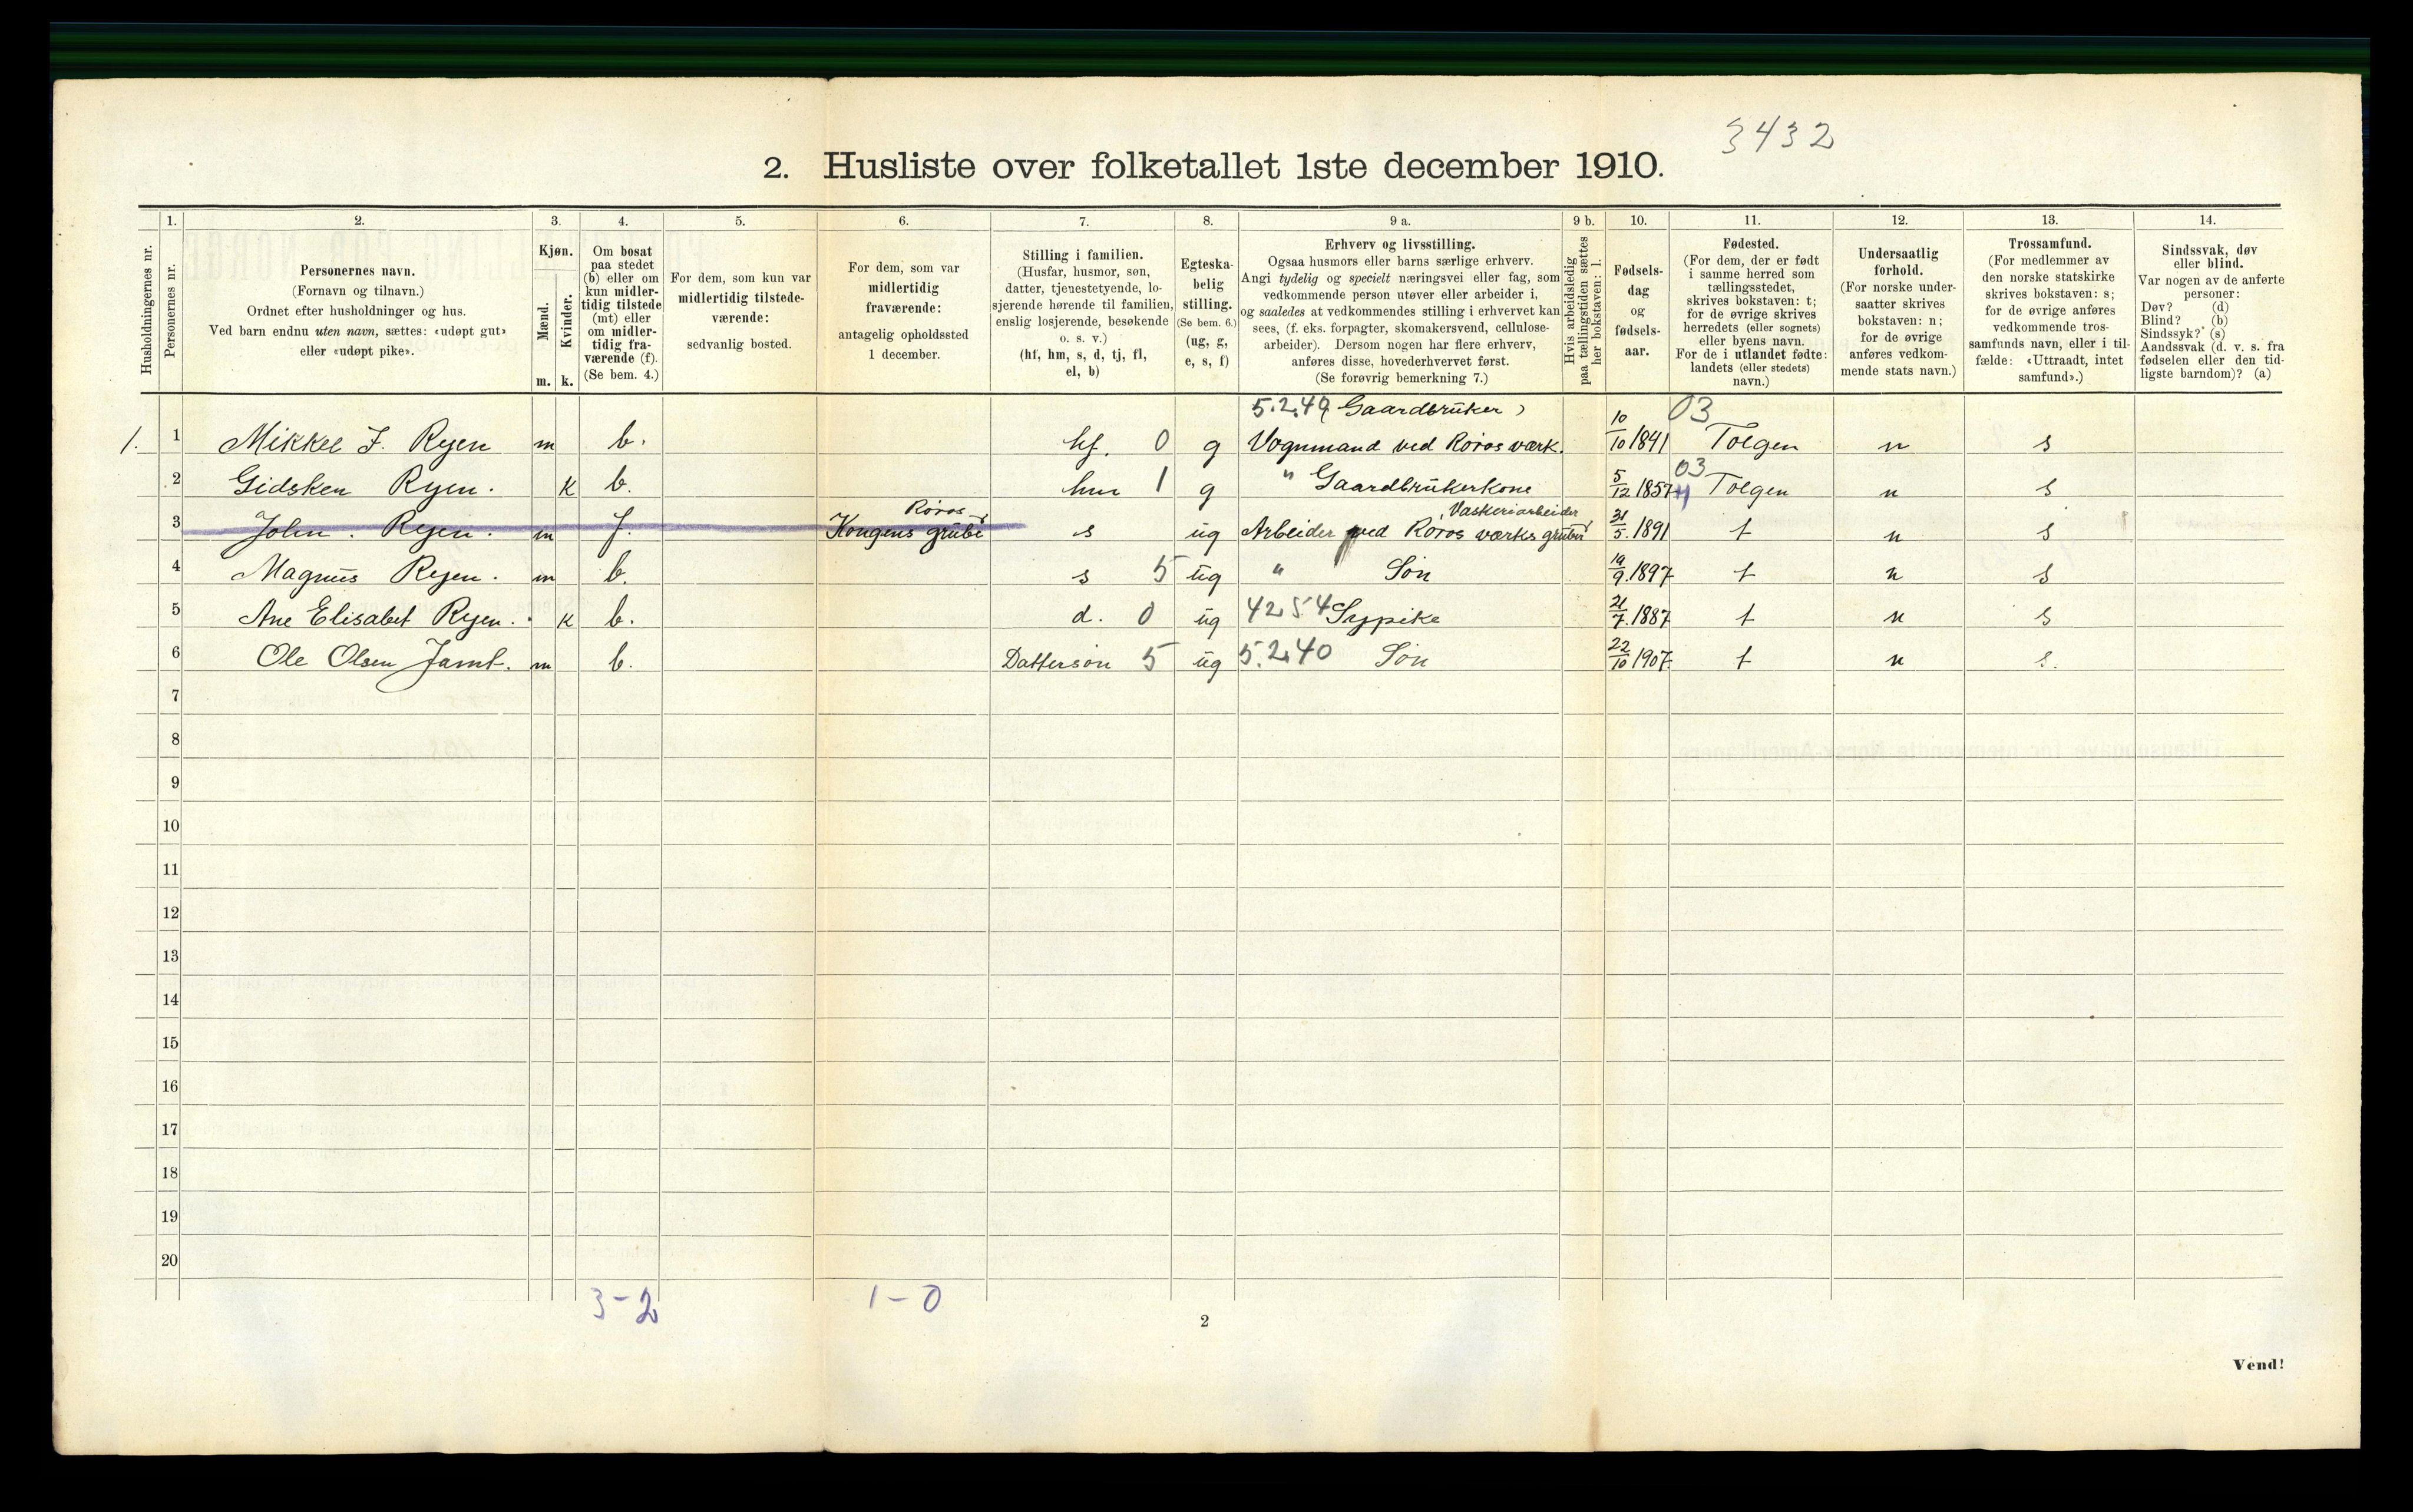 3432
2. Husliste over folketallet 1ste december 1910.
Husholdningernes nr.
1.
Personernes nr.
2.
Personernes navn.
(Fornavn og tilnavn.)
Ordnet efter husholdninger og hus.
Ved barn endnu uten navn, sættes: «udøpt gut»
eller «udøpt pike».
3.
Kjøn.
Mænd.
Kvinder.
m. k.
4.
Om bosat
paa stedet
(b) eller om
kun midler-
tidig tilstede
(mt) eller
om midler-
tidig fra-
værende (f).
(Se bem. 4.)
5.
For dem, som kun var
midlertidig tilstede-
værende:
sedvanlig bosted.
6.
For dem, som var
midlertidig
fraværende:
antagelig opholdssted
1 december.
7.
Stilling i familien.
(Husfar, husmor, søn,
datter, tjenestetyende, lo-
sjerende hørende til familien,
enslig losjerende, besøkende
o. s. v.)
(hf, hm, s, d, tj, fl,
el, b)
8.
Egteska-
belig
stilling.
(Se bem. 6.)
(ug, g,
e, s, f)
9 a.
Erhverv og livsstilling.
Ogsaa husmors eller barns særlige erhverv.
Angi tydelig og specielt næringsvei eller fag, som
vedkommende person utøver eller arbeider i,
og saaledes at vedkommendes stilling i erhvervet kan
sees, (f. eks. forpagter, skomakersvend, cellulose-
arbeider). Dersom nogen har flere erhverv,
anføres disse, hovederhvervet først.
(Se forøvrig bemerkning 7.)
9 b.
Hvis arbeidsledig
paa tællingstiden sættes
her bokstaven: l.
10.
Fødsels-
dag
og
fødsels-
aar.
11.
Fødested.
(For dem, der er født
i samme herred som
tællingsstedet,
skrives bokstaven: t;
for de øvrige skrives
herredets (eller sognets)
eller byens navn.
For de i utlandet fødte:
landets (eller stedets)
navn.)
12.
Undersaatlig
forhold.
(For norske under-
saatter skrives
bokstaven: n;
for de øvrige
anføres vedkom-
mende stats navn.)
13.
Trossamfund.
(For medlemmer av
den norske statskirke
skrives bokstaven: s;
for de øvrige anføres
vedkommende tros-
samfunds navn, eller i til-
fælde: «Uttraadt, intet
samfund».)
14.
Sindssvak, døv
eller blind.
Var nogen av de anførte
personer:
Døv? (d)
Blind? (b)
Sindssyk? (s)
Aandssvak (d. v. s. fra
fødselen eller den tid-
ligste barndom)? (a)
5.2.49 Gaardbruker) 03
1. 1 Mikkel J. Ryen m b. hf. 0 g Vognmand ved Røros værk. 10/10 1841 Tolgen n s
03
2 Gidsken Ryen. k b. hm 1 g " Gaardbrukerkone 5/12 1857 Tolgen n s
Røros Vaskeriarbeider
3 John. Ryen. m f. Kongens grube s ug Arbeider ved Røros værks gruber 31/5. 1891 t n s
4 Magnus Ryen. m b. s 5 ug " Søn 19/9. 1897 t n s
5 Ane Elisabet Ryen. k b. d. 0 ug 42 54 Sypike 21/7. 1887 t n s
6 Ole Olsen Jamt. m b. Dattersøn 5 ug 5.2.40 Søn 22/10 1907. t n s.
7
8
9
10
11
12
13
14
15
16
17
18
19
20
3-2 1-0
2
Vend!